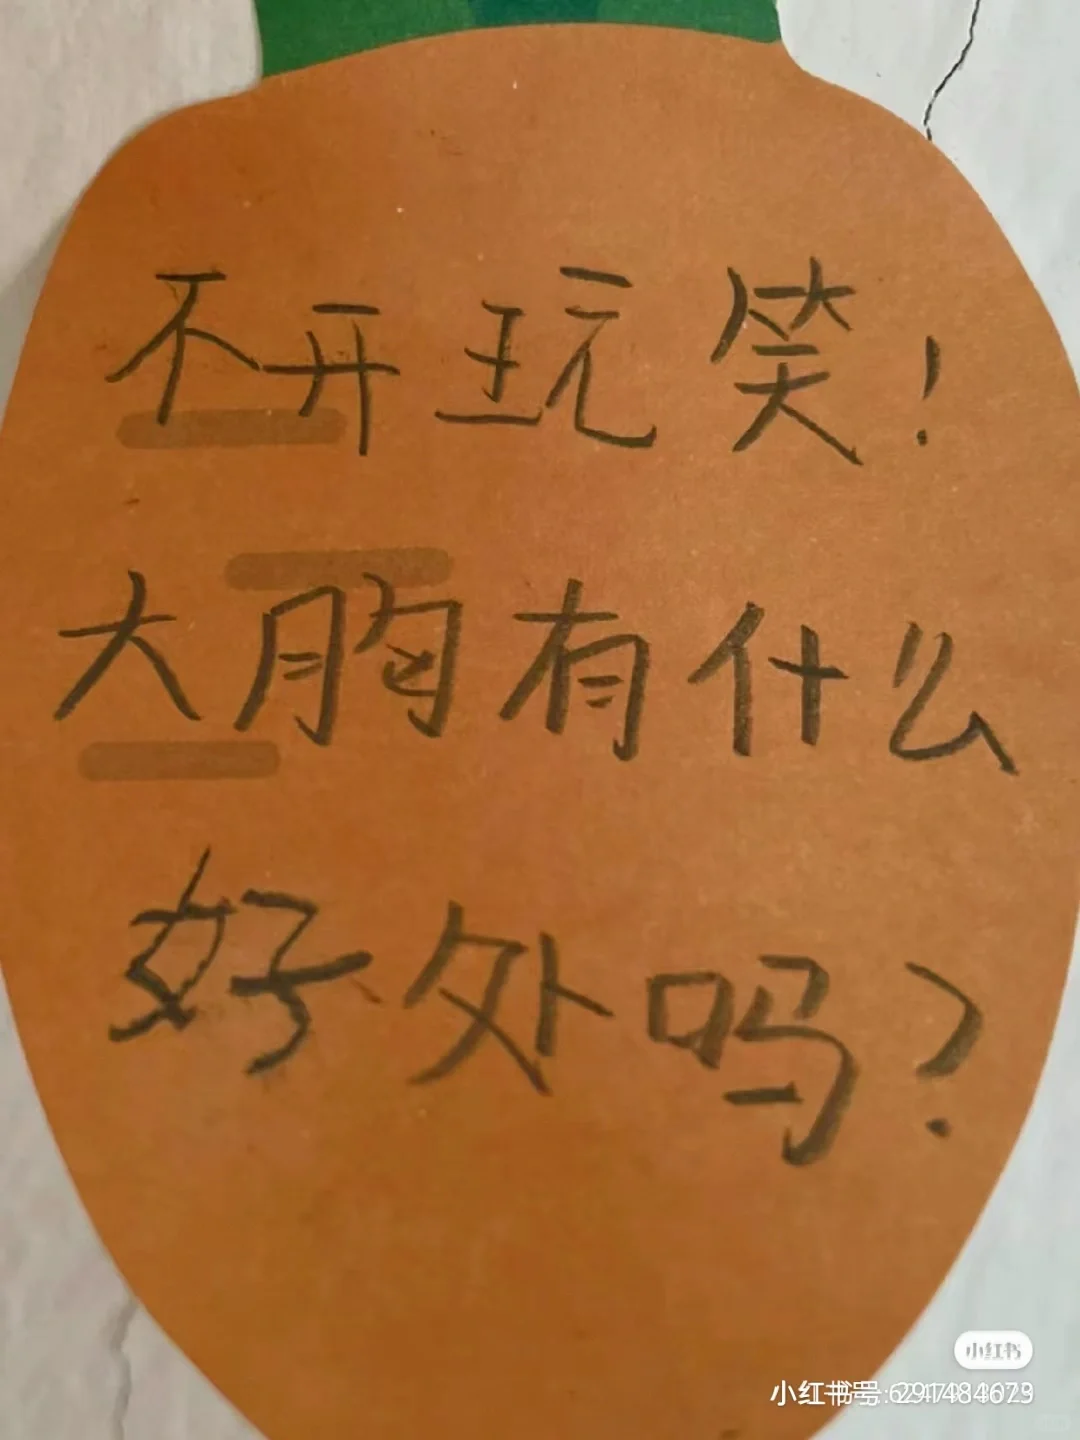 不开玩笑！
大胸有什么
好处吗？
小红书
小红书号: